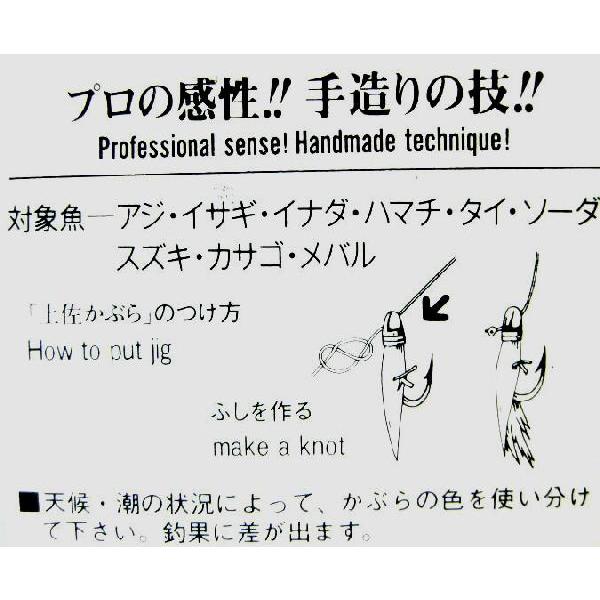 プロの感性!! 手造りの技!!
Professional sense! Handmade technique!
対象魚―アジ・イサギ・イナダ・ハマチ・タイ・ソーダ
スズキ・カサゴ・メバル
「土佐かぶら」のつけ方
How to put jig
ふしを作る
make a knot
■天候・潮の状況によって、かぶらの色を使い分け
て下さい。釣果に差が出ます。